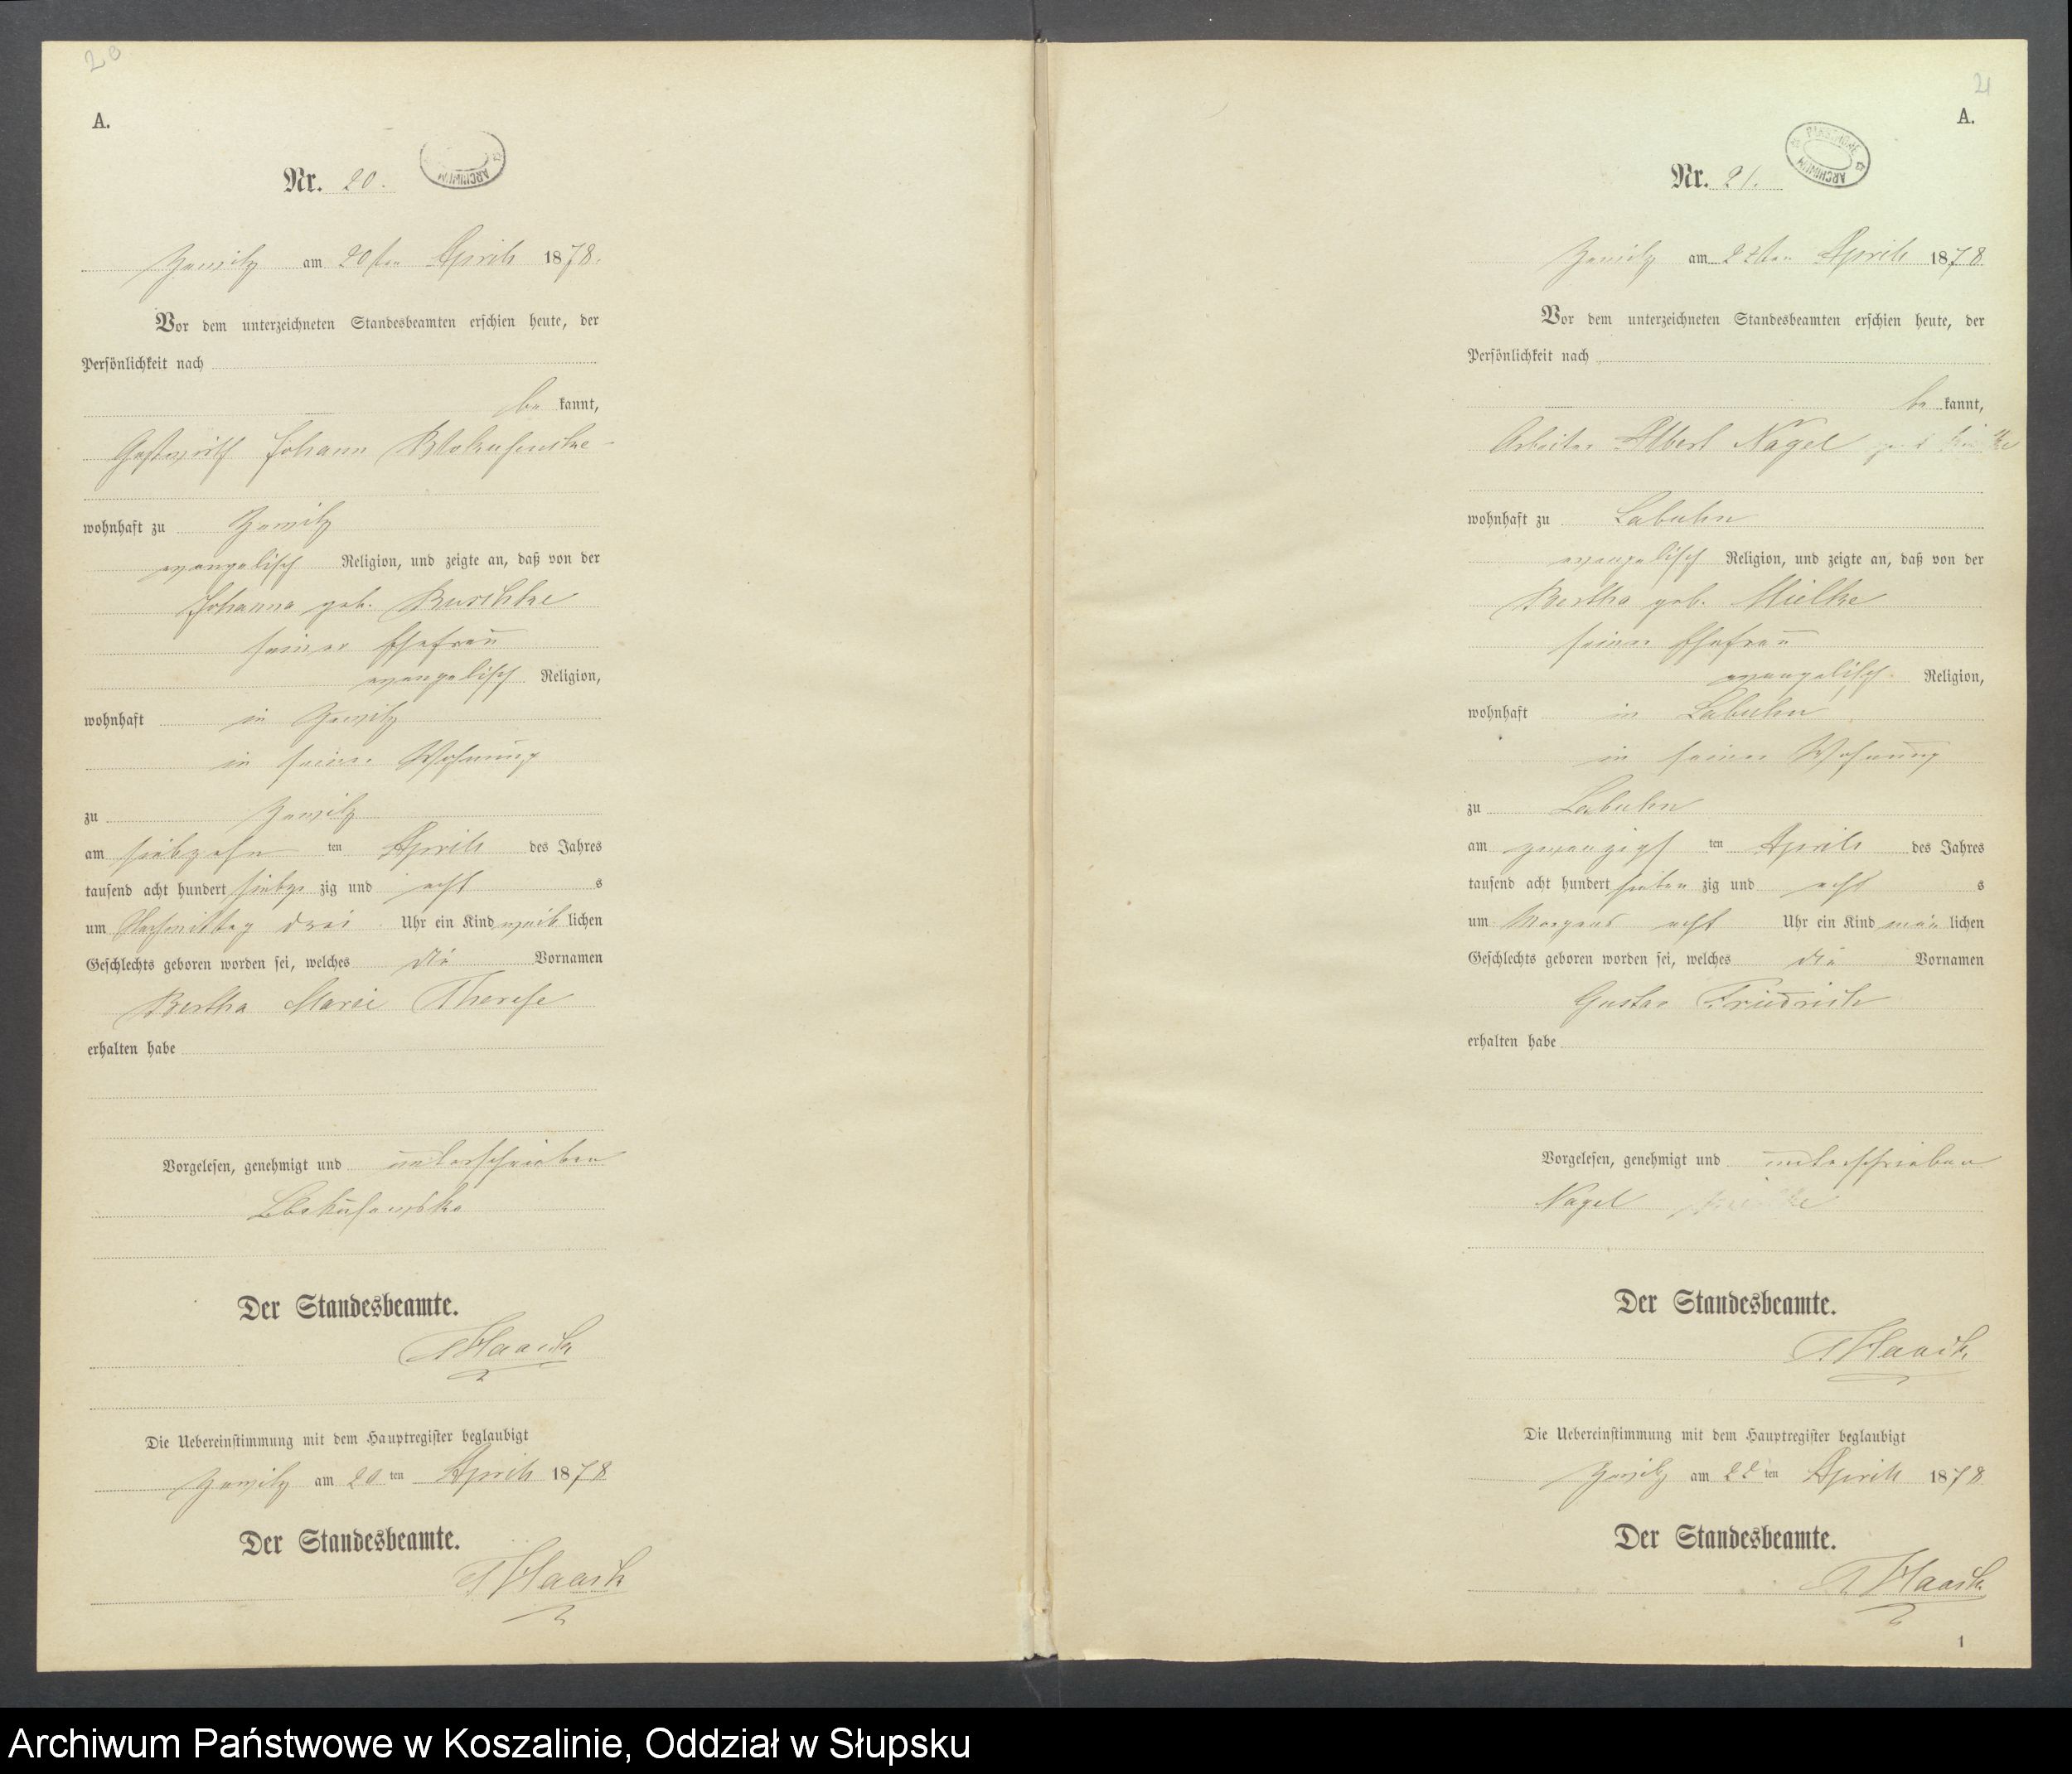 20
A.
Nr. 20.
ARCHIWUM
Zewitz am 20ten April 1878.
Vor dem unterzeichneten Standesbeamten erschien heute, der
Persönlichkeit nach
be kannt,
Gastwirth Johann
wohnhaft zu Zewitz
evangelisch Religion, und zeigte an, daß von der
Johanna geb. Buschke
seiner Ehefrau
evangelisch Religion,
wohnhaft in Zewitz
in seiner Wohnung
zu Zewitz
am siebzehn ten April des Jahres
tausend acht hundert siebzig zig und acht s
um Nachmittag drei Uhr ein Kind weib lichen
Geschlechts geboren worden sei, welches die Vornamen
Bertha Marie Therese
erhalten habe
Vorgelesen, genehmigt und unterschrieben
Der Standesbeamte.
Haack
Die Uebereinstimmung mit dem Hauptregister beglaubigt
Zewitz am 20 ten April 1878
Der Standesbeamte.
Haack
21
A.
Nr. 21.
ARCHIWUM PAŃSTWOWE
Zewitz am 22ten April 1878
Vor dem unterzeichneten Standesbeamten erschien heute, der
Persönlichkeit nach
be kannt,
Arbeiter Albert Nagel
wohnhaft zu Labuhn
evangelisch Religion, und zeigte an, daß von der
Bertha geb. Mielke
seiner Ehefrau
evangelisch Religion,
wohnhaft in Labuhn
in seiner Wohnung
zu Labuhn
am zwanzigst ten April des Jahres
tausend acht hundert sieben zig und acht s
um Morgens acht Uhr ein Kind män lichen
Geschlechts geboren worden sei, welches die Vornamen
Gustav Friedrich
erhalten habe
Vorgelesen, genehmigt und unterschrieben
Nagel
Der Standesbeamte.
Haack
Die Uebereinstimmung mit dem Hauptregister beglaubigt
Zewitz am 22 ten April 1878
Der Standesbeamte.
Haack
1
Archiwum Państwowe w Koszalinie, Oddział w Słupsku